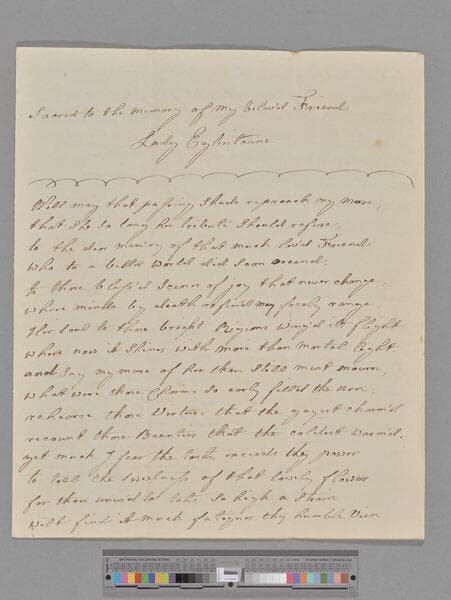 Sacred to the memory of my belov'd Friend
Lady Eglintoune
Well may that passing Shade reproach my muse,
that She So long her tribute Should refuse,
to the dear memory of that much lov'd Friend
Who to a better World did Soon ascend.
to those bless'd Scenes of joy that never change,
where minds by death refin'd may freely range.
Her Soul to those bright Regions wing'd its flight
where now it Shines with more than mortal light
and Say my muse of her thou Still must mourn,
What were those Charms So early fill'd the Urn.
rehearse those Virtues that the gayest charm'd
recount those Beauties that the coldest warm'd.
yet much I fear the task exceeds thy power
to tell the Sweetness of that lovely flower
for thou unus'd to take So high a Strain
wilt find it much fatigues thy humble Vein